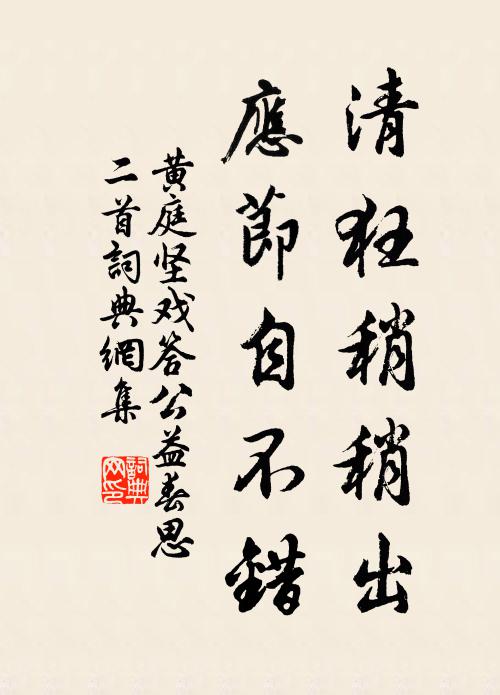 清狂稍稍出
應節自不錯
黄庭坚戏答公益春思
二首詞典網集
詞典
网印